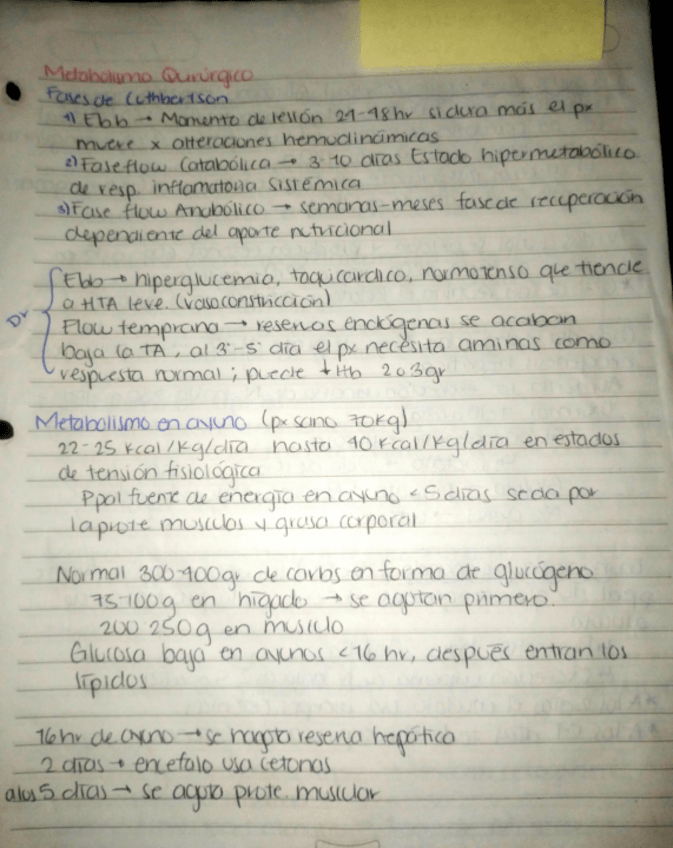 Metabolismo Quirúrgico
Fases de Cuthbertson
1) Ebb → Momento de lesión 24-48hr si dura más el px
muere x alteraciones hemodinámicas
2) Fase flow Catabólica → 3-10 días Estado hipermetabólico
de resp. inflamatoria sistémica
3) Fase flow Anabólico → semanas-meses fase de recuperación
dependiente del aporte nutricional
Ebb → hiperglucemia, taquicardico, normotenso que tiende
a HTA leve. (vasoconstricción)
Flow temprana → reservas endógenas se acaban
baja la TA, al 3°-5° día el px necesita aminas como
respuesta normal; puede ↓ Hb 2 o 3 gr
Metabolismo en ayuno (px sano 70kg)
22-25 Kcal/Kg/día hasta 40 Kcal/Kg/día en estados
de tensión fisiológica
Ppal fuente de energía en ayuno <5 días se da por
la prote musculos y grasa corporal
Normal 300-400gr de carbs en forma de glucógeno
75-100g en hígado → se agotan primero.
200-250g en musculo
Glucosa baja en ayunos <16 hr, después entran los
lípidos
16hr de ayuno → se hagota reserva hepática
2 días → encefalo usa cetonas
a los 5 días → se agota prote. muscular